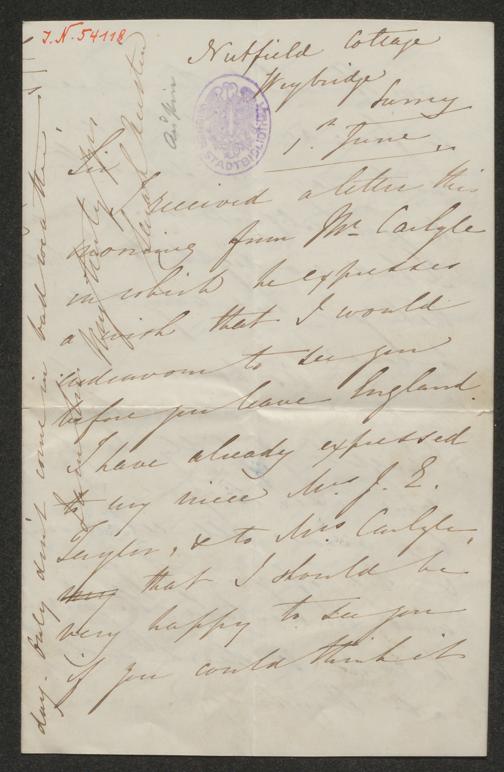 J.N. 54118
Nutfield Cottage
Weybridge
Surrey
1st June
Sir
I received a letter this
morning from Mr Carlyle
in which he expresses
a wish that I would
endeavour to see you
before you leave England.
I have already expressed
to my niece Mrs J. E.
Taylor, & to Mrs Carlyle,
that I should be
very happy to see you
if you could think it
day. Only don't come in bad weather.
Sarah Austin
STADTBIBLIOTHEK